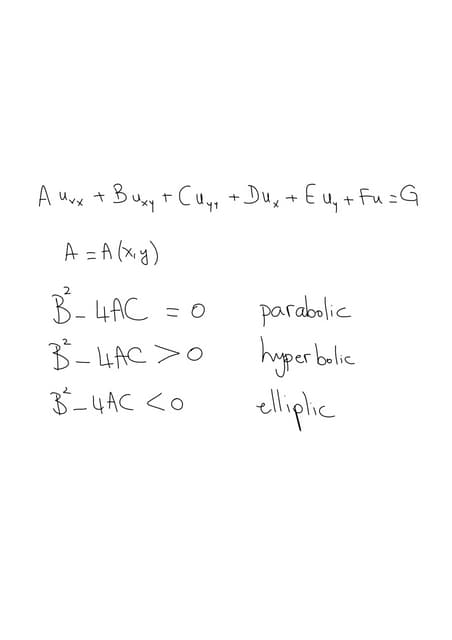 A uₓₓ + B uₓy + C uyy + Duₓ + E uy + Fu = G
A = A(x,y)
B² - 4AC = 0 parabolic
B² - 4AC > 0 hyperbolic
B² - 4AC < 0 elliptic